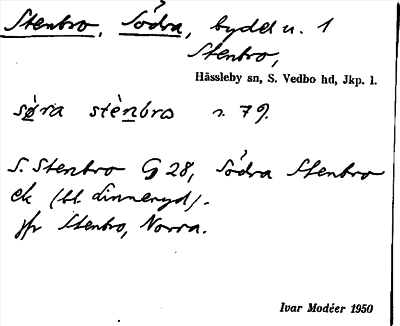 Stenbro, Södra, bydel u. 1
Stenbro,
Hässleby sn, S. Vedbo hd, Jkp. l.
sø̀ra stènbro r. 79.
S. Stenbro G 28, Södra Stenbro
ek (bl. Linneryd).
jfr Stenbro, Norra.
Ivar Modéer 1950